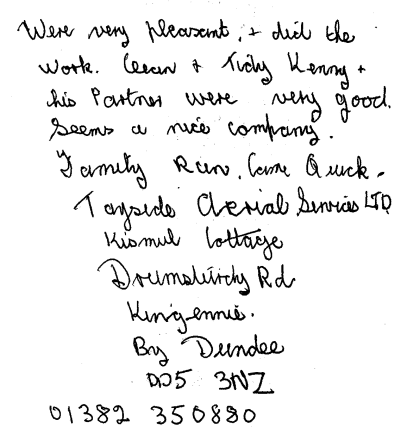 Were very pleasant, + did the
work. Clean + Tidy Kenny +
his Partner were very good.
Seems a nice company.
Family Run. Came Quick.
Tayside Aerial Services LTD
Kismul Cottage
Drumsturdy Rd
Kingennie.
By Dundee
DD5 3NZ
01382 350880